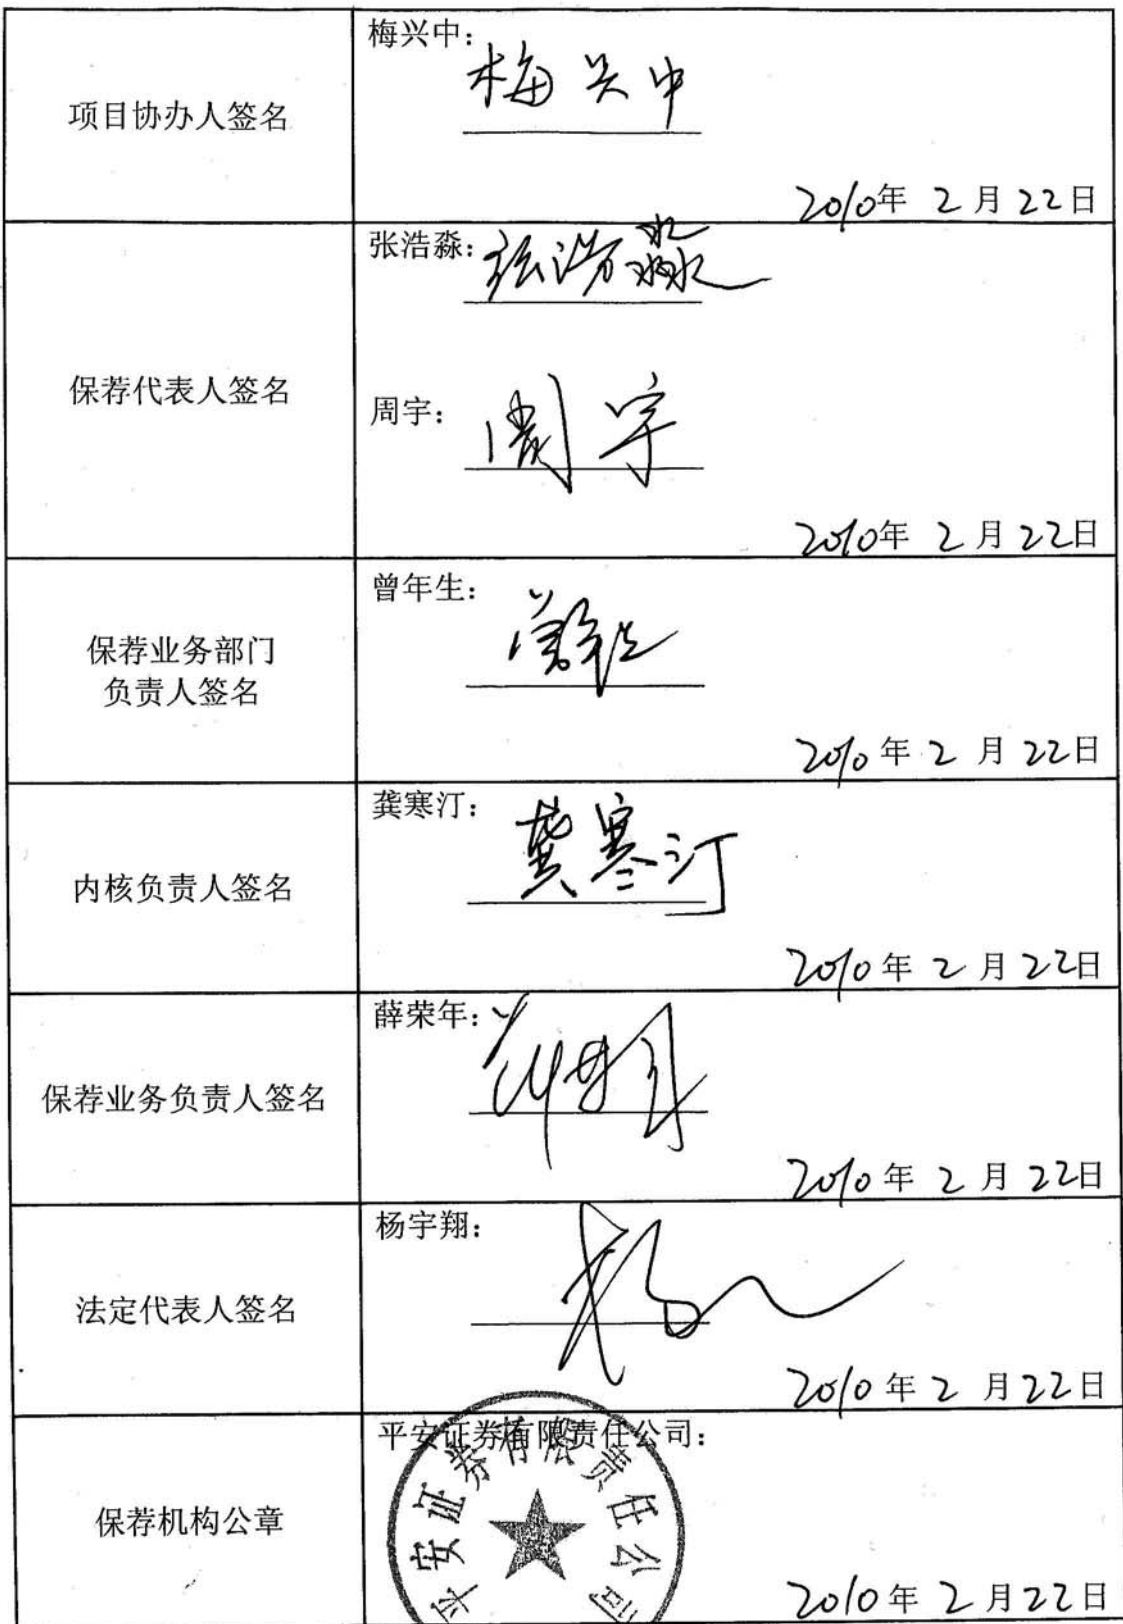 项目协办人签名
梅兴中：
梅兴中
2010年 2 月 22 日
保荐代表人签名
张浩淼：
张浩淼
周宇：
周宇
2010年 2 月 22日
保荐业务部门
负责人签名
曾年生：
曾年生
2010年 2 月 22日
内核负责人签名
龚寒汀：
龚寒汀
2010年 2 月 22日
保荐业务负责人签名
薛荣年：
薛荣年
2010年 2 月 22日
法定代表人签名
杨宇翔：
2010年 2 月 22日
保荐机构公章
平安证券有限责任公司：
平安证券有限责任公司
2010年 2 月 22日